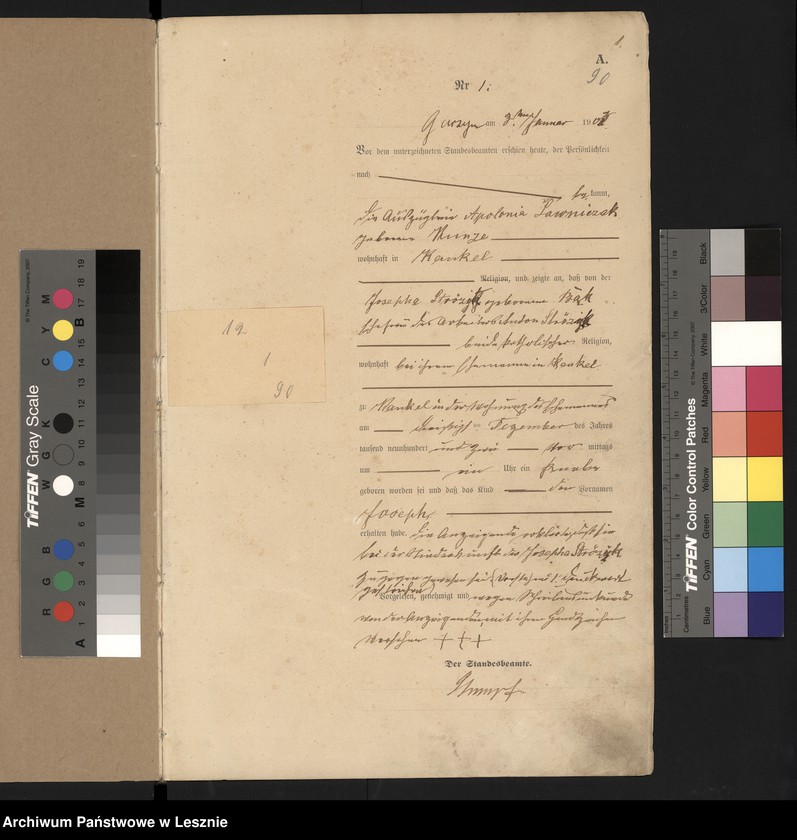 1.
A.
90
Nr 1.
Garzyn am 3. Januar 1903
Vor dem unterzeichneten Standesbeamten erschien heute, der Persönlichkeit
nach
bekannt,
die Auszüglerin Apolonia Ławniczak
geborene Kunze
wohnhaft in Kankel
Religion, und zeigte an, daß von der
Josepha Stróżyk geborenen Bąk
Ehefrau des Arbeiters Stróżyk
beide katholischer Religion,
wohnhaft bei ihrem Ehemanne in Kankel
zu Kankel in der Wohnung des Ehemannes
am Dezember des Jahres
tausend neunhundert und zwei vor mittags
um ein Uhr ein Knabe
geboren worden sei und daß das Kind den Vornamen
Joseph
erhalten habe. Die Anzeigende erklärte, daß sie
bei der Niederkunft der Josepha Stróżyk
zugegen gewesen sei. Vorstehend 1 Druckwort
gestrichen
Vorgelesen, genehmigt und wegen Schreibensunkunde
von der Anzeigenden mit ihrem Handzeichen
versehen + + +
Der Standesbeamte.
Stumpf
12
1
90
TIFFEN Gray Scale
© The Tiffen Company, 2007
R G B W G K C Y M
A 1 2 3 4 5 6 M 8 9 10 11 12 13 14 15 B 17 18 19
TIFFEN Color Control Patches
© The Tiffen Company, 2007
Centimetres
Blue Cyan Green Yellow Red Magenta White 3/Color Black
Archiwum Państwowe w Lesznie